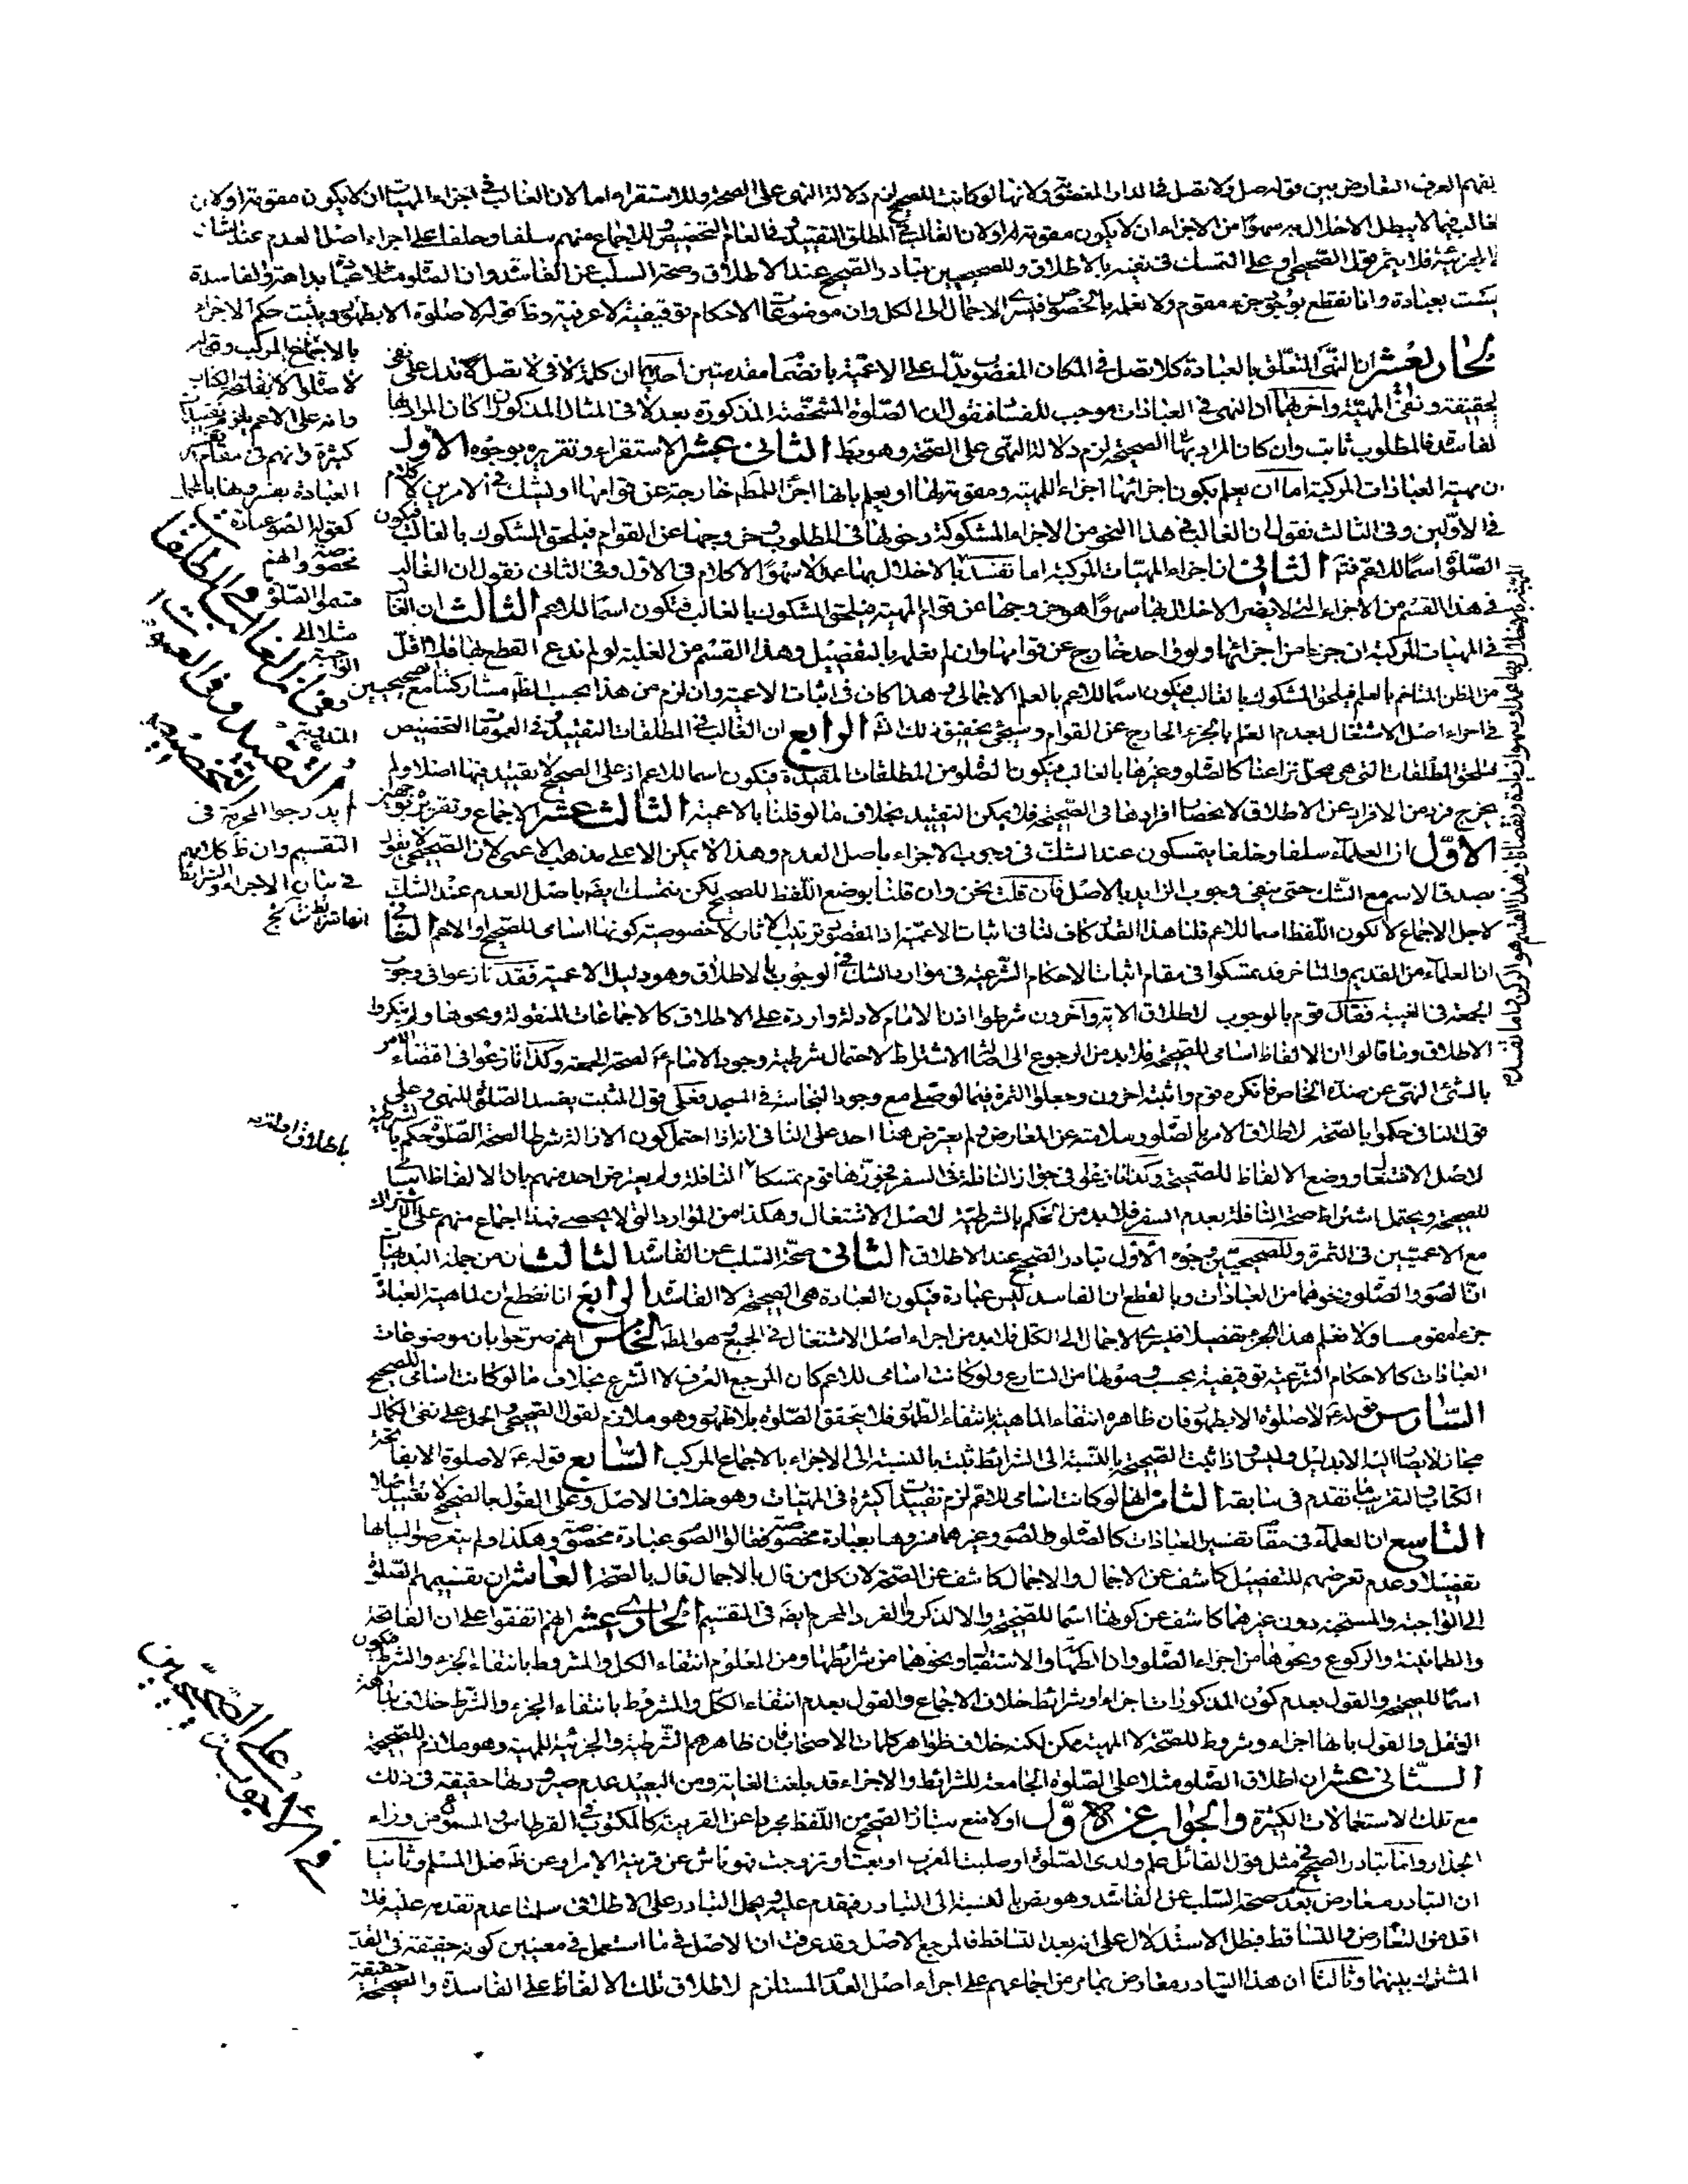 يفهم العرف التعارض بين قوله صل ولا تصل في الدار المغصوبة ولانها لو كانت للصحيح لزم دلالة النهى على الصحة وللاستقراء اما لان الغالب في اجزاء المهيات ان لا يكون مقومة او لان
غالب ما لا يبطل الاخلال به سهوا من الاجزاء ان لا يكون مقومة لها او لان الغالب في المطلق التقييد وفي العام التخصيص وللاجماع منهم سلفا وخلفا على اجراء اصل العدم عند الشك
في الجزئية فلا يتم قول الصحيحي وعلى التمسك في نفيه بالاطلاق وللصحيحيين تبادر الصحيح عند الاطلاق وصحة السلب عن الفاسد وان الصلوة مثلا عبادة بداهة والفاسدة
ليست بعبادة وانا نقطع بوجود جزء مقوم ولا نعلمه بالخصوص فيسرى الاجمال الى الكل وان موضوعات الاحكام توقيفية لا عرفية وظ قوله لا صلوة الا بطهور ويثبت حكم الاجزاء
بالاجماع المركب وقوله
لا صلوة الا بفاتحة الكتاب
وانه على الاعم يلزم تقييدات
كثيرة وانهم في مقام تفسير
العبادة يفسرونها بالاجمال
كقولهم الصوم عبادة
مخصوصة وانهم
قسموا الصلوة
مثلا الى
الواجبة
المندوبة
ولم يدرجوا المحرمة في
التقسيم وان ظ كلامهم
في بيان الاجزاء والشرائط
الحاديعشر ان النهى المتعلق بالعبادة كلا تصل في المكان المغصوب يدل على الاعمية بانضمام مقدمتين احديهما ان كلمة لا في لا تصل لا تدل على نفى
الحقيقة ونفى المهية واخريهما ان النهى في العبادات موجب للفساد فنقول ان الصلوة المشخصة المذكورة بعد لا في المثال المذكور ان كان المراد بها
الفاسد فالمطلوب ثابت وان كان المراد بها الصحيحة لزم دلالة النهى على الصحة وهو بط الثاني عشر الاستقراء وتقريره بوجوه الاول
ان مهية العبادات المركبة اما ان يعلم بكون اجزائها اجزاء للمهية ومقومة لها او يعلم بانها اجزاء للمط خارجة عن قوامها او يشك في الامرين لا كلام
في الاولين وفي الثالث نقول ان الغالب في هذا النحو من الاجزاء المشكوكة دخولها في المطلوب خروجها عن القوام فيلحق المشكوك بالغالب فيكون
الصلوة اسما للاعم فتم الثاني ان اجزاء المهيات المركبة اما تفسد بالاخلال بها عمدا لا سهوا الا كلام في الاول وفي الثاني نقول ان الغالب
في هذا القسم من الاجزاء التى لا يضر الاخلال بها سهوا هو خروجها عن قوام المهية فيلحق المشكوك بالغالب فتكون اسما للاعم الثالث ان الغالب
في المهيات المركبة ان جزءا من اجزائها ولو واحد خارج عن قوامها وان لم نعلمه بالتفصيل وهذا القسم من الغلبة لو لم ندع القطع بها فلا اقل
من الظن المتاخم بالعلم فيلحق المشكوك بالغالب فيكون اسما للاعم بالعلم الاجمالى وهذا كان في اثبات الاعمية وان لزم من هذا بحسب الظاهر مشاركتنا مع الصحيحيين
في اجراء اصل الاشتغال لعدم العلم بالجزء الخارج عن القوام وسيجئ تحقيق ذلك الرابع ان الغالب في المطلقات التقييد وفي العمومات التخصيص
فيلحق المطلقات التى هى محل نزاعنا كالصلوة وغيرها بالغالب فيكون الصلوة من المطلقات المقيدة فيكون اسما للاعم اذ على الصحيح لا تقييد فيها اصلا ولم
يخرج فرد من الافراد عن الاطلاق لانحصار افرادها في الصحيحة فلا يمكن التقييد بخلاف ما لو قلنا بالاعمية الثالث عشر الاجماع وتقريره بوجهين
الاول ان العلماء سلفا وخلفا يتمسكون عند الشك في وجوب الاجزاء باصل العدم وهذا لا يمكن الا على مذهب الاعمى لان الصحيحي لا يقول
بصدق الاسم مع الشك حتى ينفى وجوب الزايد بالاصل فان قلت نحن وان قلنا بوضع اللفظ للصحيح لكن نتمسك ايضا باصل العدم عند الشك
لاجل الاجماع لا لكون اللفظ اسما للاعم قلنا هذا القدر كاف لنا في اثبات الاعمية اذ المقصود ترتيب الاثار لا خصوصية كونها اسامى للصحيح او الاعم الثانى
ان العلماء من القديم والمتاخر قد تمسكوا في مقام اثبات الاحكام الشرعية في موارد الشك في الوجوب بالاطلاق وهو دليل الاعمية فقد نازعوا في وجوب
الجمعة في الغيبة فقال قوم بالوجوب لاطلاق الاية وآخرون شرطوا اذن الامام لادلة واردة على الاطلاق كالاجماعات المنقولة ونحوها ولم ينكروا
الاطلاق وما قالوا ان الالفاظ اسامى للصحيحة فلا بد من الرجوع الى اصالة الاشتراط لاحتمال شرطية وجود الامام لصحة الجمعة وكذا نازعوا في اقتضاء الامر
بالشئ النهى عن ضده الخاص فانكره قوم واثبته اخرون وجعلوا الثمرة فيما لو صلى مع وجود النجاسة في المسجد فعلى قول المثبت يفسد الصلوة للنهى وعلى
قول النافى حكموا بالصحة لاطلاق الامر بالصلوة وسلامته عن المعارض ولم يعترض هنا احد على النافى انه اذا احتمل كون الازالة شرطا لصحة الصلوة حكم بالشرطية
لاصل الاشتغال ووضع الالفاظ للصحيحة وكذا نازعوا في جواز النافلة في السفر فجوزها قوم تمسكا النافلة ولم يعترض احد منهم بان الالفاظ اسامى
للصحيحة ويحتمل اشتراط صحة النافلة بعدم السفر فلا بد من الحكم بالشرطية لاصل الاشتغال وهكذا من الموارد التى لا يحصى فهذا اجماع منهم على
مع الاعميين في الثمرة وللصحيحيين وجوه الاول تبادر الصحيح عند الاطلاق الثاني صحة السلب عن الفاسد الثالث ان من جملة البديهيات
ان الصوم والصلوة ونحوهما من العبادات وبالقطع ان الفاسد ليس عبادة فيكون العبادة هى الصحيحة لا الفاسد الرابع انا نقطع ان لماهية العبادة
جزءا مقوما ولا نعلم هذا الجزء تفصيلا فيسرى الاجمال الى الكل فلا بد من اجراء اصل الاشتغال في الجميع وهو المط الخامس انهم صرحوا بان موضوعات
العبادات كالاحكام الشرعية توقيفية يجب وصولها من الشارع ولو كانت اسامى للاعم كان المرجع العرف لا الشرع بخلاف ما لو كانت اسامى للصحيح
السادس قوله لا صلوة الا بطهور فان ظاهره انتفاء الماهية بانتفاء الطهور فلا يتحقق الصلوة بلا طهور وهو ملازم لقول الصحيحي والحمل على نفى الكمال
مجاز لا يصار اليه الا بدليل وليس اذا ثبت الصحيحة بالنسبة الى الشرائط ثبت بالنسبة الى الاجزاء بالاجماع المركب السابع قوله لا صلوة الا بفاتحة
الكتاب والتقريب ما تقدم في سابقه الثامن انها لو كانت اسامى للاعم لزم تقييدات كثيرة في المهيات وهو خلاف الاصل وعلى القول بالصحيح لا تقييد اصلا
التاسع ان العلماء في مقام تفسير العبادات كالصلوة والصوم وغيرهما فسروها بعبادة مخصوصة فقالوا الصوم عبادة مخصوصة وهكذا ولم يتعرضوا لبيانها
تفصيلا وعدم تعرضهم للتفصيل كاشف عن الاجمال والاجمال كاشف عن الصحة لان كل من قال بالاجمال قال بالصحة العاشر ان تقسيمهم الصلوة
الى الواجبة والمستحبة دون غيرهما كاشف عن كونها اسما للصحيحة والا لذكروا الفرد المحرم ايضا في التقسيم الحادى عشر انهم اتفقوا على ان الفاتحة
والطمانينة والركوع ونحوها من اجزاء الصلوة وان الطهارة والاستقبال ونحوهما من شرائطها ومن المعلوم انتفاء الكل والمشروط بانتفاء الجزء والشرط فيكون
اسما للصحيحة والقول بعدم كون المذكورات اجزاء او شرائط خلاف الاجماع والقول بعدم انتفاء الكل والمشروط بانتفاء الجزء والشرط خلاف بداهة
العقل والقول بانها اجزاء وشروط للصحة لا المهية ممكن لكنه خلاف ظواهر كلمات الاصحاب فان ظاهرهم الشرطية والجزئية للمهية وهو ملازم للصحيحة
الثانى عشر ان اطلاق الصلوة مثلا على الصلوة الجامعة للشرائط والاجزاء قد بلغت الغاية ومن البعيد عدم صيرورتها حقيقة في ذلك
مع تلك الاستعمالات الكثيرة والجواب عن الاول اولا منع تبادر الصحيح من اللفظ مجردا عن القرينة كالمكتوب في القرطاس والمسموع من وراء
الجدار وانما تبادر الصحيح في مثل قول القائل علم ولدى الصلوة او صليت المغرب او بعت او تزوجت فهو ناش عن قرينة الامر او عن ظهور فعل المسلم وثانيا
ان التبادر معارض بعدم صحة السلب عن الفاسد وهو نص بالنسبة الى التبادر فيقدم عليه ويحمل التبادر على الاطلاقى سلمنا عدم تقدمه عليه فلا
اقل من التعارض والتساقط فبطل الاستدلال على انه بعد التساقط فالمرجع الاصل وقد عرفت ان الاصل في ما استعمل في معنيين كونه حقيقة في القدر
المشترك بينهما وثالثا ان هذا التبادر معارض بما مر من اجماعهم على اجراء اصل العدم المستلزم لاطلاق تلك الالفاظ على الفاسدة والصحيحة حقيقة